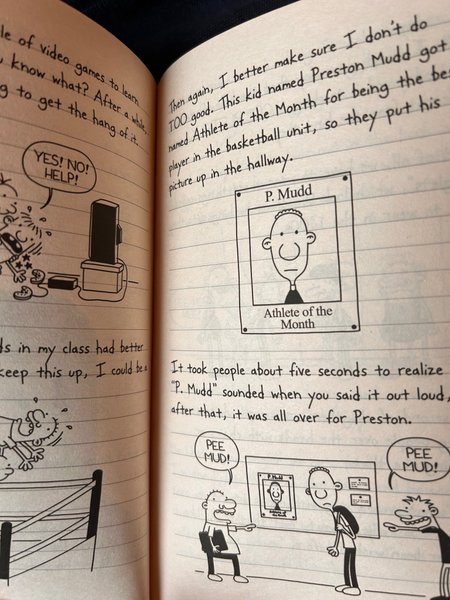 le of video games to learn
know what? After a while,
g to get the hang of it.
YES! NO!
HELP!
ds in my class had better
keep this up, I could be a
Then again, I better make sure I don't do
TOO good. This kid named Preston Mudd got
named Athlete of the Month for being the bes
player in the basketball unit, so they put his
picture up in the hallway.
P. Mudd
Athlete of the
Month
It took people about five seconds to realize
"P. Mudd" sounded when you said it out loud,
after that, it was all over for Preston.
PEE
MUD!
P. Mudd
PEE
MUD!